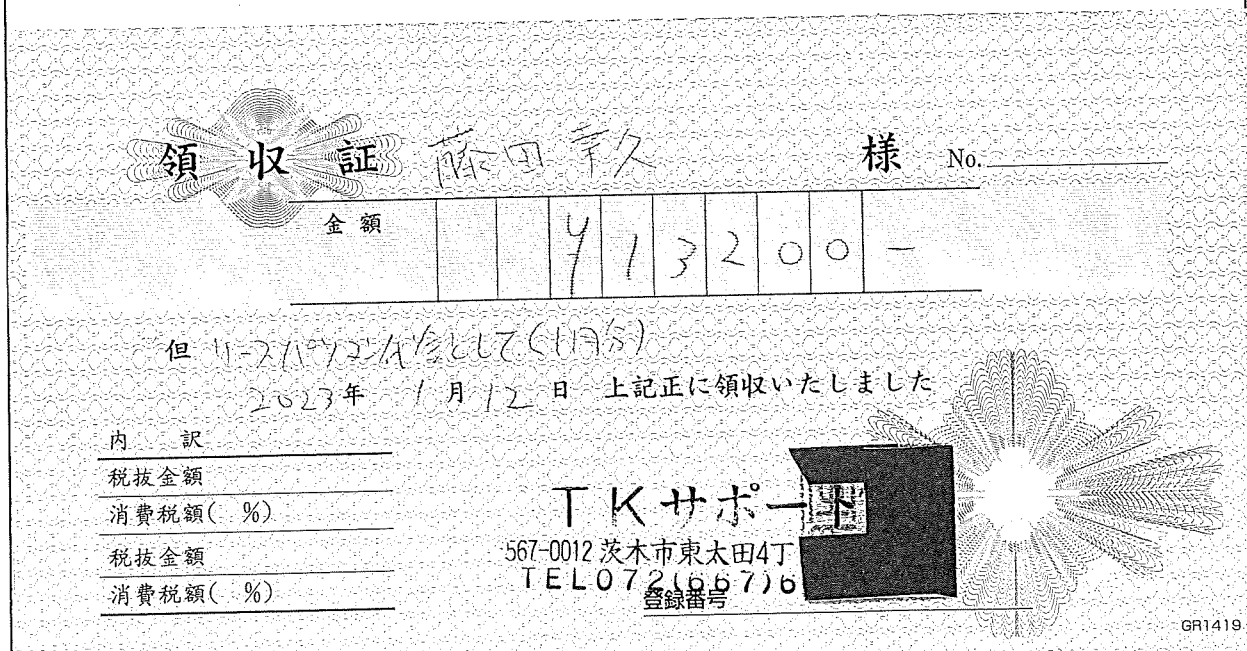 領収証 藤田幸久 様 No.
金額 ¥13200-
但 リースパソコン代金として(1月分)
2023年 1月12日 上記正に領収いたしました
内訳
税抜金額
消費税額( %)
税抜金額
消費税額( %)
TKサポート
567-0012 茨木市東太田4丁
TEL072(667)6
登録番号
GR1419